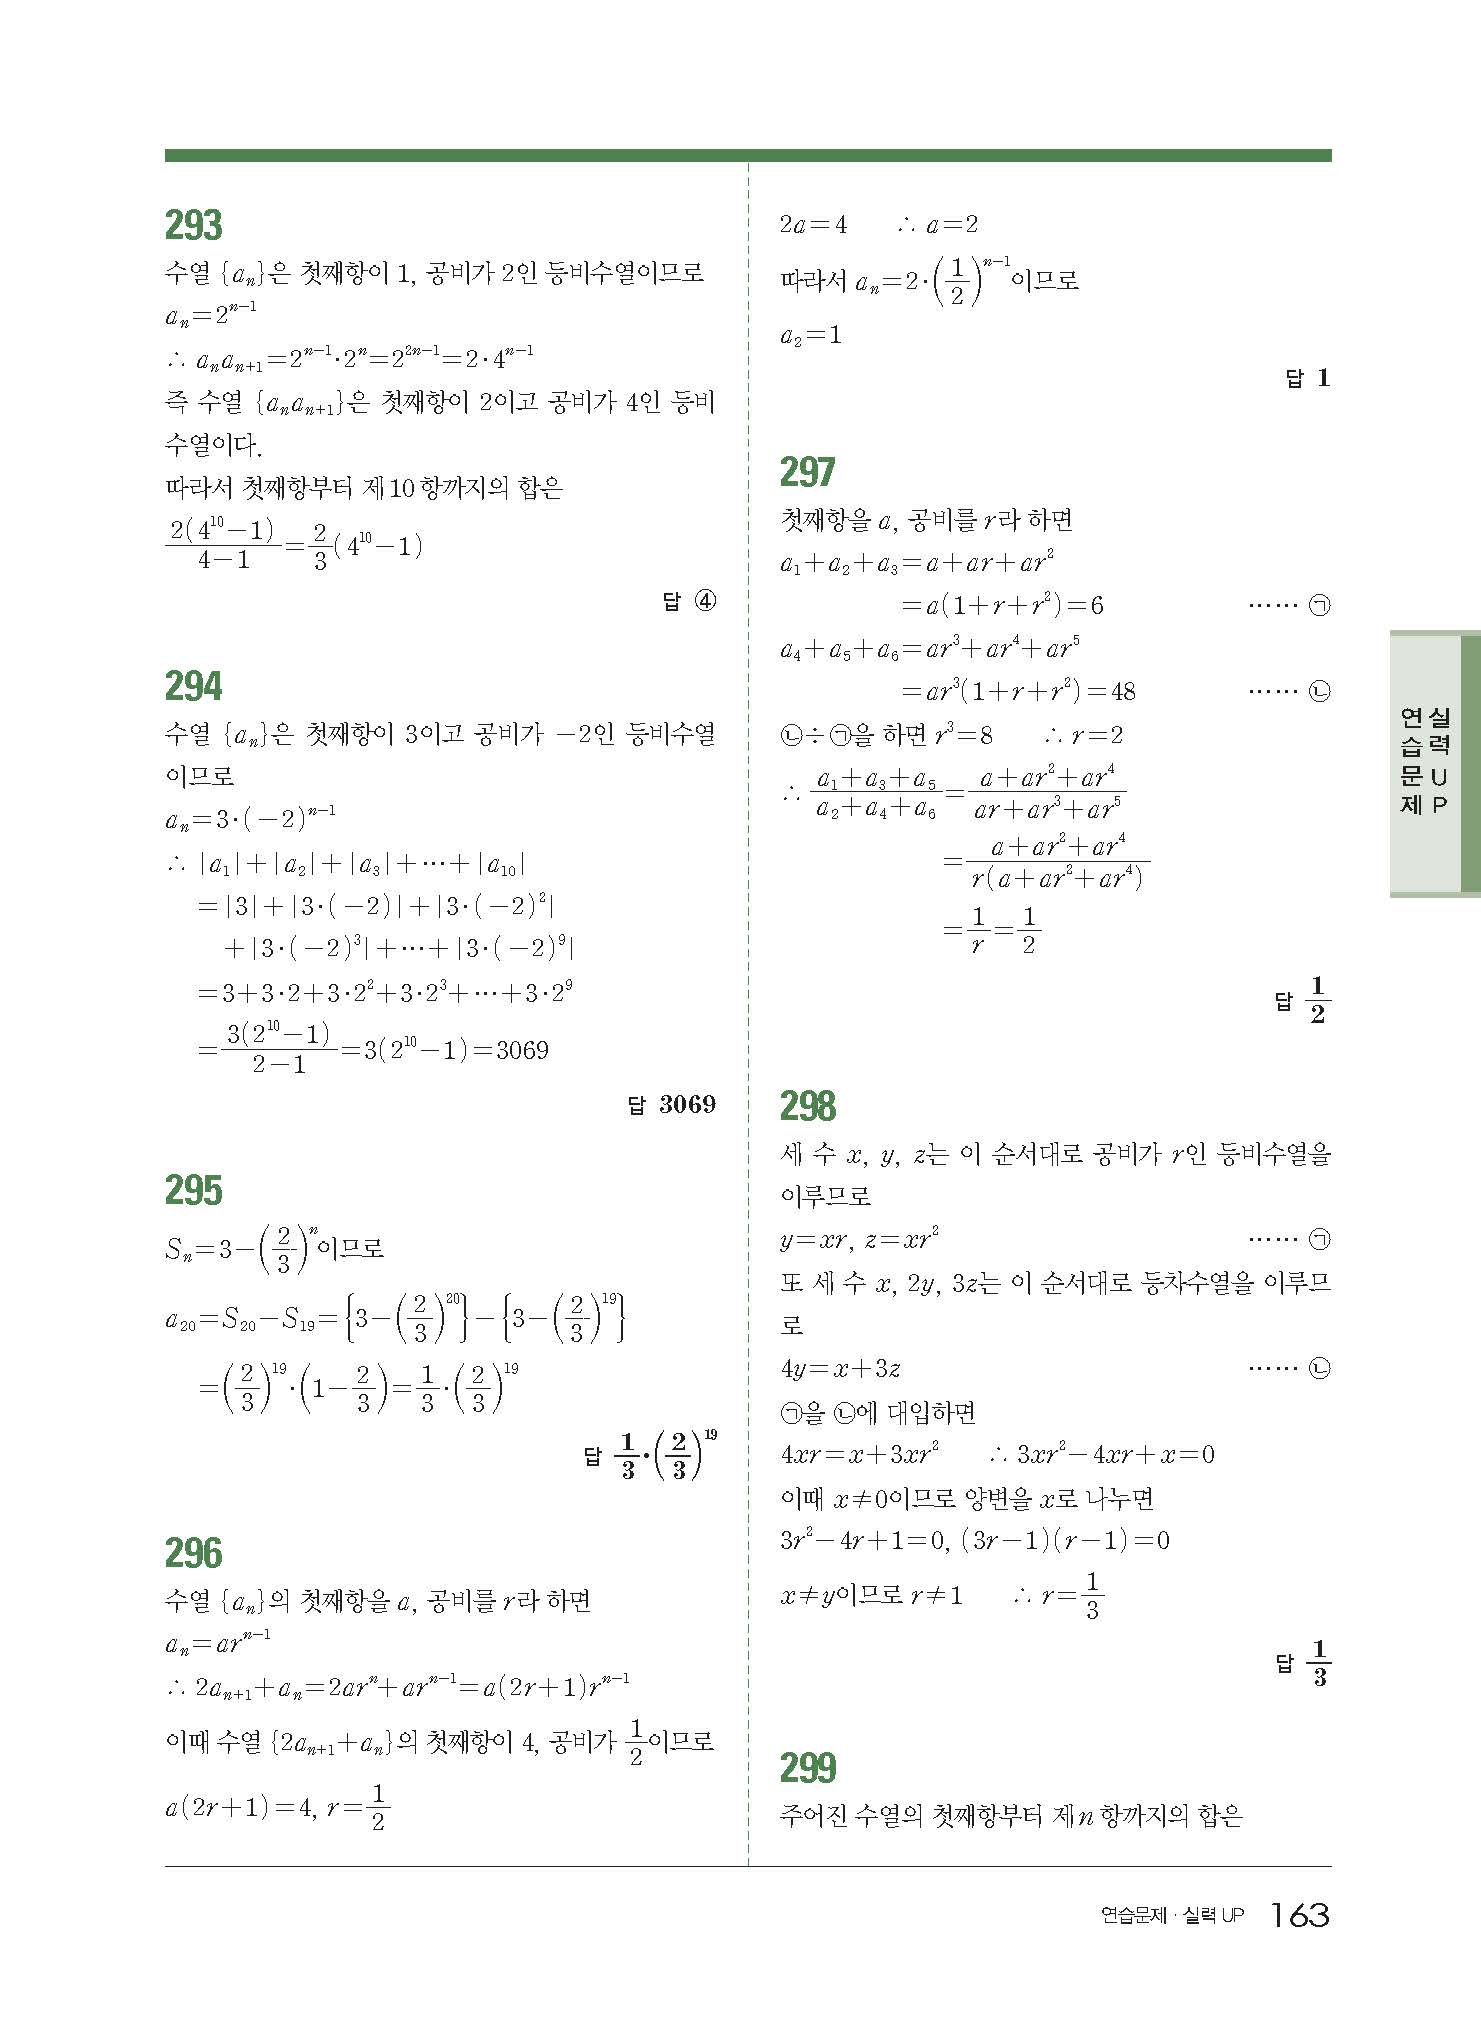 293
수열 {aₙ}은 첫째항이 1, 공비가 2인 등비수열이므로
aₙ=2ⁿ⁻¹
∴ aₙaₙ₊₁=2ⁿ⁻¹·2ⁿ=2²ⁿ⁻¹=2·4ⁿ⁻¹
즉 수열 {aₙaₙ₊₁}은 첫째항이 2이고 공비가 4인 등비
수열이다.
따라서 첫째항부터 제10항까지의 합은
2(4¹⁰-1)/(4-1)=2/3(4¹⁰-1)
답 ④
294
수열 {aₙ}은 첫째항이 3이고 공비가 -2인 등비수열
이므로
aₙ=3·(-2)ⁿ⁻¹
∴ |a₁|+|a₂|+|a₃|+⋯+|a₁₀|
=|3|+|3·(-2)|+|3·(-2)²|
+|3·(-2)³|+⋯+|3·(-2)⁹|
=3+3·2+3·2²+3·2³+⋯+3·2⁹
=3(2¹⁰-1)/(2-1)=3(2¹⁰-1)=3069
답 3069
295
Sₙ=3-(2/3)ⁿ이므로
a₂₀=S₂₀-S₁₉={3-(2/3)²⁰}-{3-(2/3)¹⁹}
=(2/3)¹⁹·(1-2/3)=1/3·(2/3)¹⁹
답 1/3·(2/3)¹⁹
296
수열 {aₙ}의 첫째항을 a, 공비를 r라 하면
aₙ=arⁿ⁻¹
∴ 2aₙ₊₁+aₙ=2arⁿ+arⁿ⁻¹=a(2r+1)rⁿ⁻¹
이때 수열 {2aₙ₊₁+aₙ}의 첫째항이 4, 공비가 1/2이므로
a(2r+1)=4, r=1/2
2a=4 ∴ a=2
따라서 aₙ=2·(1/2)ⁿ⁻¹이므로
a₂=1
답 1
297
첫째항을 a, 공비를 r라 하면
a₁+a₂+a₃=a+ar+ar²
=a(1+r+r²)=6 ⋯⋯ ㉠
a₄+a₅+a₆=ar³+ar⁴+ar⁵
=ar³(1+r+r²)=48 ⋯⋯ ㉡
㉡÷㉠을 하면 r³=8 ∴ r=2
∴ (a₁+a₃+a₅)/(a₂+a₄+a₆)=(a+ar²+ar⁴)/(ar+ar³+ar⁵)
=(a+ar²+ar⁴)/(r(a+ar²+ar⁴))
=1/r=1/2
답 1/2
298
세 수 x, y, z는 이 순서대로 공비가 r인 등비수열을
이루므로
y=xr, z=xr² ⋯⋯ ㉠
또 세 수 x, 2y, 3z는 이 순서대로 등차수열을 이루므
로
4y=x+3z ⋯⋯ ㉡
㉠을 ㉡에 대입하면
4xr=x+3xr² ∴ 3xr²-4xr+x=0
이때 x≠0이므로 양변을 x로 나누면
3r²-4r+1=0, (3r-1)(r-1)=0
x≠y이므로 r≠1 ∴ r=1/3
답 1/3
299
주어진 수열의 첫째항부터 제n항까지의 합은
연습문제
실력UP
연습문제·실력 UP 163